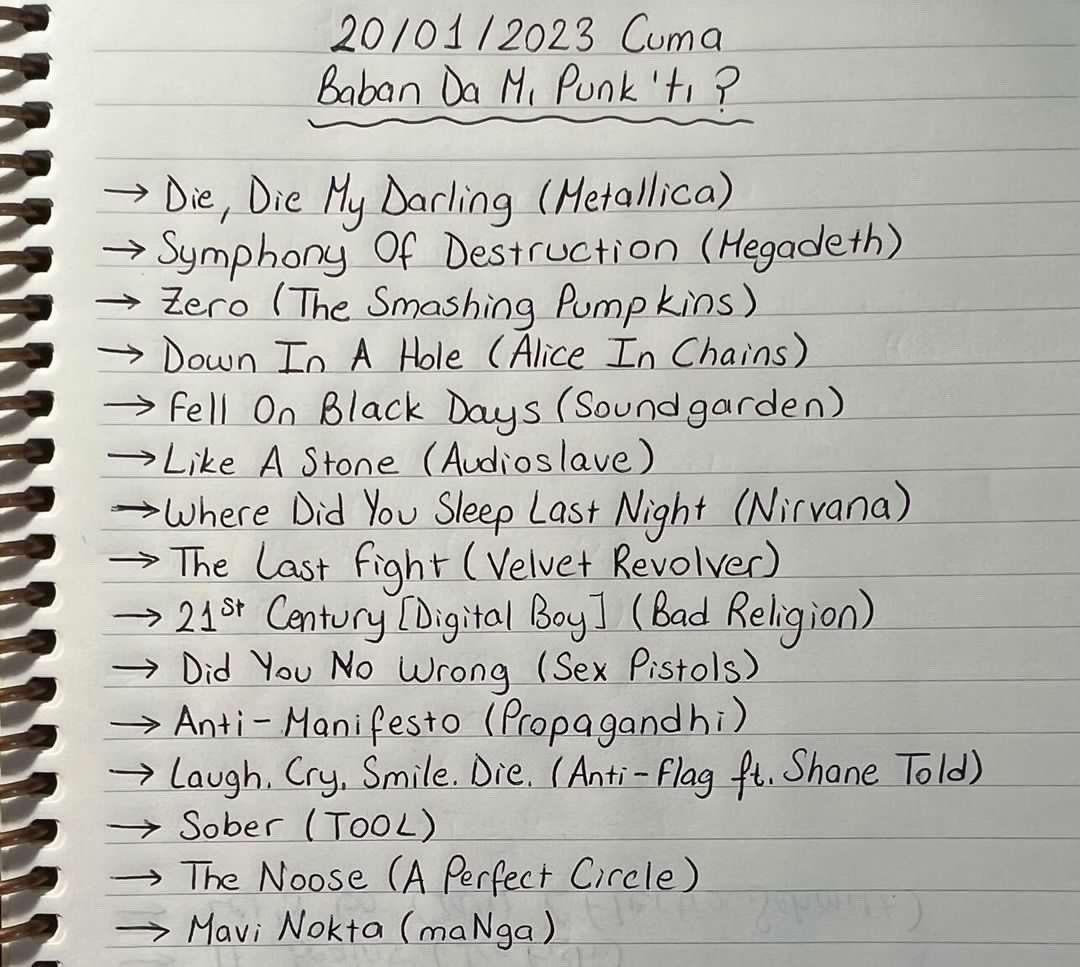 20/01/2023 Cuma
Baban Da Mı Punk'tı ?
→ Die, Die My Darling (Metallica)
→ Symphony Of Destruction (Megadeth)
→ Zero (The Smashing Pumpkins)
→ Down In A Hole (Alice In Chains)
→ Fell On Black Days (Soundgarden)
→ Like A Stone (Audioslave)
→ Where Did You Sleep Last Night (Nirvana)
→ The Last Fight (Velvet Revolver)
→ 21st Century [Digital Boy] (Bad Religion)
→ Did You No Wrong (Sex Pistols)
→ Anti-Manifesto (Propagandhi)
→ Laugh. Cry. Smile. Die. (Anti-Flag ft. Shane Told)
→ Sober (TOOL)
→ The Noose (A Perfect Circle)
→ Mavi Nokta (maNga)